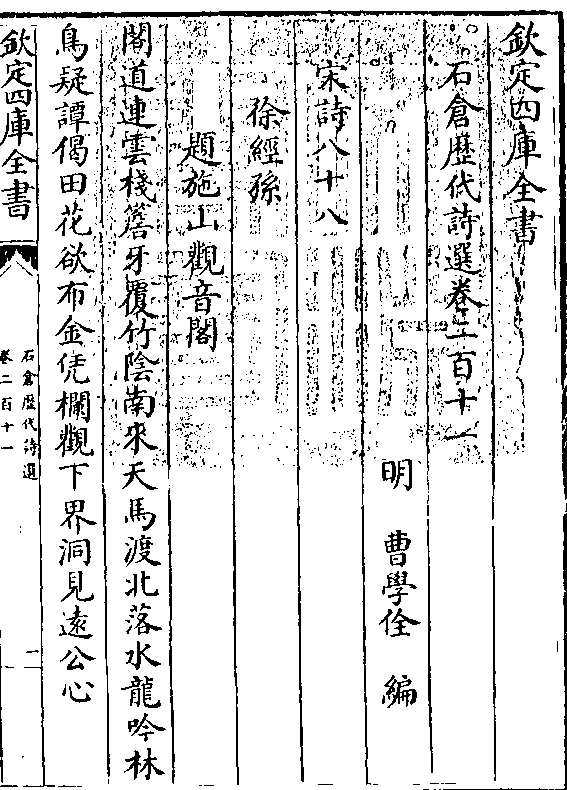 欽定四庫全書
石倉歷代詩選卷二百十一
明 曹學佺 編
宋詩八十八
徐經孫
題施山觀音閣
閣道連雲棧簷牙覆竹陰南來天馬渡北落水龍吟林
鳥疑譚偈田花欲布金凭欄觀下界洞見遠公心
欽定四庫全書
石倉歷代詩選
卷二百十一
二